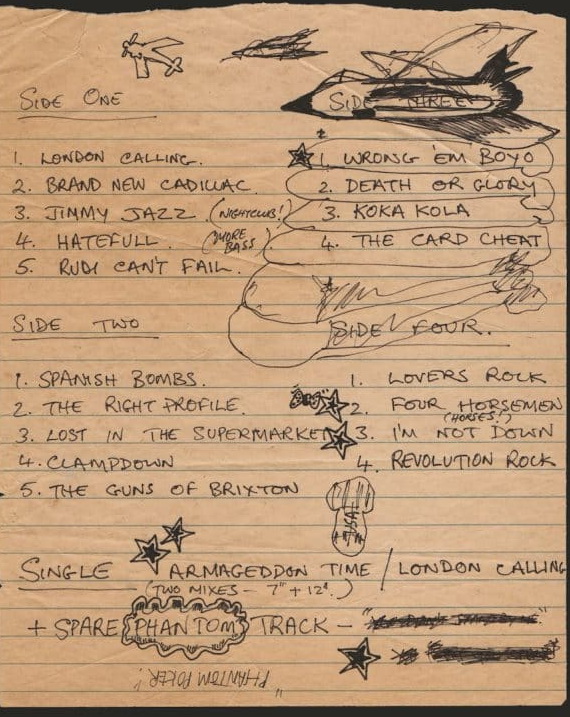 SIDE ONE
1. LONDON CALLING.
2. BRAND NEW CADILLAC.
3. JIMMY JAZZ (NIGHTCLUB!)
4. HATEFULL. (MORE BASS)
5. RUDI CAN'T FAIL.
SIDE TWO
1. SPANISH BOMBS.
2. THE RIGHT PROFILE.
3. LOST IN THE SUPERMARKET
4. CLAMPDOWN
5. THE GUNS OF BRIXTON
SIDE THREE
1. WRONG 'EM BOYO
2. DEATH OR GLORY
3. KOKA KOLA
4. THE CARD CHEAT
SIDE FOUR.
1. LOVERS ROCK
2. FOUR HORSEMEN
(HORSES!)
3. I'M NOT DOWN
4. REVOLUTION ROCK
USA!
SINGLE ARMAGEDDON TIME / LONDON CALLING
(TWO MIXES - 7" + 12".)
+ SPARE PHANTOM TRACK -
PHANTOM POKER!